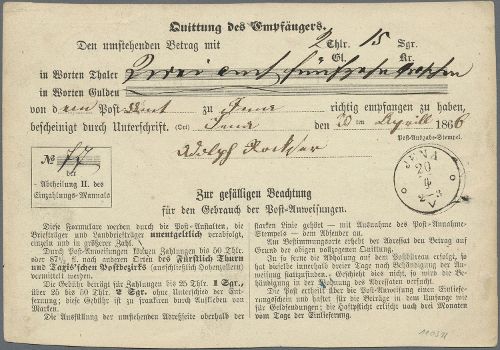 Quittung des Empfängers.
Den umstehenden Betrag mit 2 Thlr. 15 Sgr.
Gl. Kr.
in Worten Thaler Zwei und fünfzehn Groschen
in Worten Gulden
von dem Post Amt zu Jena richtig empfangen zu haben,
bescheinigt durch Unterschrift. (Ort) Jena den 20ten April 1866
Post-Ausgabe-Stempel.
Adolph
№ 77
der
Abtheilung II. des
Einzahlungs-Manuals
JENA
20
4
2-3
Zur gefälligen Beachtung
für den Gebrauch der Post-Anweisungen.
Diese Formulare werden durch die Post-Anstalten, die
Briefträger und Landbriefträger unentgeltlich verabfolgt,
einzeln und in größerer Zahl.
Durch Post-Anweisungen können Zahlungen bis 50 Thlr.
oder 87½ fl. nach jedem Orte des Fürstlich Thurn
und Taxis'schen Postbezirks (ausschließlich Hohenzollern)
vermittelt werden.
Die Gebühr beträgt für Zahlungen bis 25 Thlr. 1 Sgr.,
über 25 bis 50 Thlr. 2 Sgr. ohne Unterschied der Ent-
fernung; diese Gebühr ist zu frankiren durch Aufkleben von
Marken.
Die Ausfüllung der umstehenden Adreßseite oberhalb der
starken Linie gehört — mit Ausnahme des Post-Annahme-
Stempels — dem Absender ob.
Am Bestimmungsorte erhebt der Adressat den Betrag auf
Grund der obigen vollzogenen Quittung.
In so ferne die Abholung auf dem Postbüreau erfolgt, so
hat dieselbe innerhalb vier Tage nach Behändigung der An-
weisung stattzufinden. Geschieht dies nicht, so wird die Be-
händigung in der Wohnung des Adressaten versucht.
Die Post ertheilt über die Post-Anweisung einen Einlieferungs-
schein und haftet für die Beträge in dem Umfange wie
für Geldsendungen; die Haftpflicht erlischt nach drei Monaten
vom Tage der Einlieferung.